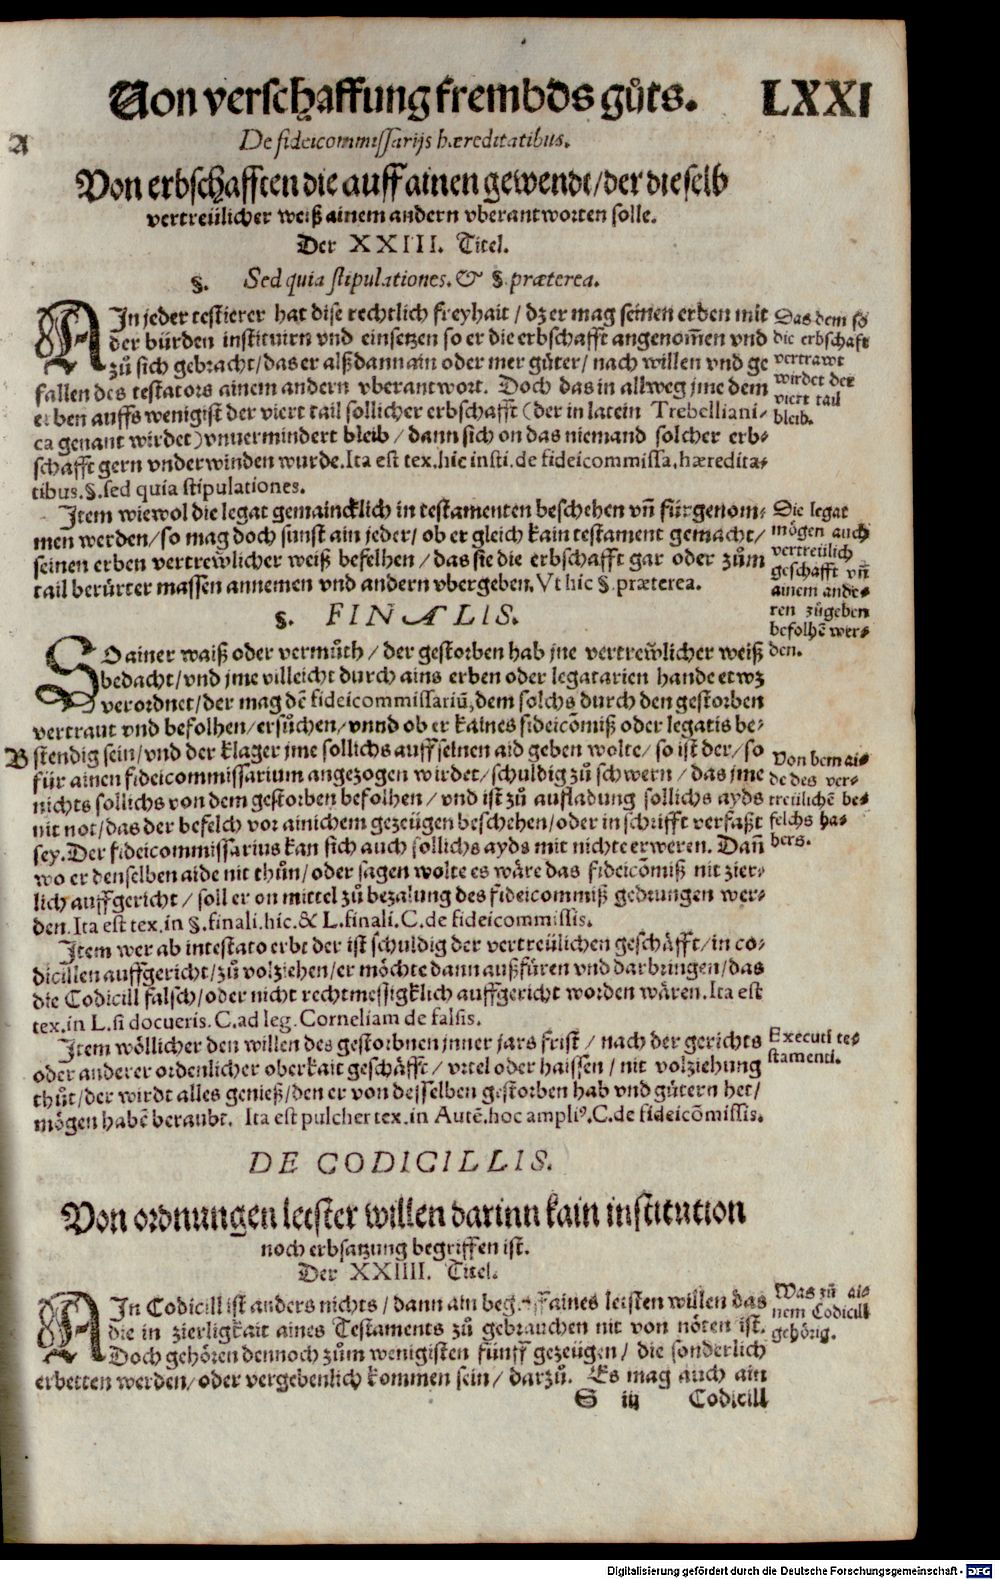 Von verschaffung frembds gůts. LXXI
A
De fideicommissarijs hæreditatibus.
Von erbschafften die auff ainen gewendt/der dieselb
vertreülicher weiß ainem andern vberantworten solle.
Der XXIII. Titel.
§. Sed quia stipulationes. & §. præterea.
AIn jeder testierer hat dise rechtlich freyhait / dz er mag seinen erben mit
der bürden instituirn vnd einsetzen so er die erbschafft angenom̃en vnd
zů sich gebracht/das er alß dann ain oder mer güter/nach willen vnd ge
fallen des testators ainem andern vberantwort. Doch das in allweg jme dem
erben auffs wenigist der viert tail sollicher erbschafft (der in latein Trebelliani-
ca genant wirdet) vnuermindert bleib / dann sich on das niemand solcher erb-
schafft gern vnderwinden wurde. Ita est tex. hic insti. de fideicommissa. hæredita-
tibus. §. sed quia stipulationes.
Das dem so
die erbschaft
vertrawt
wirdet der
viert tail
bleib.
Item wiewol die legat gemaincklich in testamenten beschehen vñ fürgenom-
men werden/so mag doch sunst ain jeder/ ob er gleich kain testament gemacht/
seinen erben vertrewlicher weiß befelhen / das sie die erbschafft gar oder zům
tail berürter massen annemen vnd andern vbergeben. Vt hic §. præterea.
Die legat
mögen auch
vertreülich
geschafft vñ
ainem ande-
ren zůgeben
befolhẽ wer-
den.
§. FINALIS.
SO ainer waiß oder vermůth / der gestorben hab jne vertrewlicher weiß
bedacht/vnd jme villeicht durch ains erben oder legatarien hande etwz
verordnet/der mag dẽ fideicommissariũ, dem solchs durch den gestorben
vertraut vnd befolhen/ersůchen/vnnd ob er kaines fideicõmiß oder legatis be-
B
stendig sein/vnd der klager jme sollichs auff seinen aid geben wolte/so ist der/so
für ainen fideicommissarium angezogen wirdet/schuldig zů schwern/das jme
nichts sollichs von dem gestorben befolhen / vnd ist zů aufladung sollichs ayds
nit not/das der befelch vor ainichem gezeügen beschehen/oder in schrifft verfaßt
sey. Der fideicommissarius kan sich auch sollichs ayds mit nichte erweren. Dañ
wo er denselben aide nit thůn/oder sagen wolte es wäre das fideicõmiß nit zier-
lich auffgericht / soll er on mittel zů bezalung des fideicommiß gedrungen wer-
den. Ita est tex. in §. finali. hic. & L. finali. C. de fideicommissis.
Von dem ai-
de des ver-
treülichẽ be-
felchs ha-
bers.
Item wer ab intestato erbt der ist schuldig der vertreülichen geschäfft/in co-
dicillen auffgericht/zů volziehen/er möchte dann außfüren vnd darbringen/das
die Codicill falsch/oder nicht rechtmessigklich auffgericht worden wären. Ita est
tex. in L. si docueris. C. ad leg. Corneliam de falsis.
Item wöllicher den willen des gestorbnen jnner jars frist / nach der gerichts
oder anderer ordenlicher oberkait geschäfft / vrtel oder haissen / nit volziehung
thůt/der wirdt alles genieß/den er von desselben gestorben hab vnd gütern het/
mögen habẽ beraubt. Ita est pulcher tex. in Autẽ. hoc ampliꝰ. C. de fideicõmissis.
Executi te-
stamenti.
DE CODICILLIS.
Von ordnungen letster willen darinn kain institution
noch erbsatzung begriffen ist.
Der XXIIII. Titel.
AIn Codicill ist anders nichts / dann ain aines letsten willen das
die in zierligkait aines Testaments zů gebrauchen nit von nöten ist.
Doch gehören dennoch zům wenigisten fünff gezeügen / die sonderlich
erbetten werden/oder vergebenlich kommen sein/ darzů. Es mag auch ain
Was zů ai-
nem Codicill
gehörig.
S iij Codicill
Digitalisierung gefördert durch die Deutsche Forschungsgemeinschaft - DFG